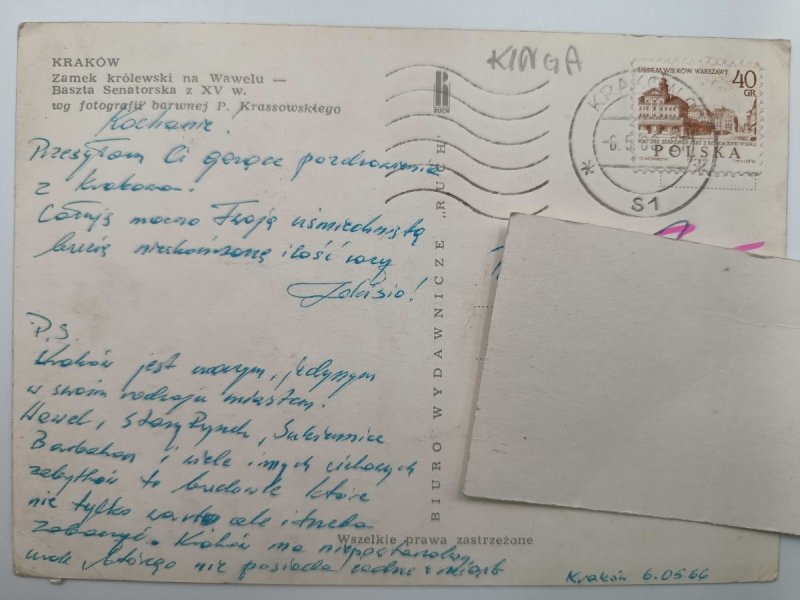 KRAKÓW
Zamek królewski na Wawelu —
Baszta Senatorska z XV w.
wg fotografii barwnej P. Krassowskiego
Kochanie!
Przesyłam Ci gorące pozdrowienia
z Krakowa.
Całuję mocno Twoją uśmiechniętą
buzię nieskończoną ilość razy
P.S.
Kraków jest starym, jedynym
w swoim rodzaju miastem.
Wawel, Stary Rynek, Sukiennice
Barbakan i wiele innych ciekawych
zabytków to budowle które
nie tylko warto ale i trzeba
zobaczyć. Kraków ma niepowtarzalny
urok którego nie posiada żadne z miast
BIURO WYDAWNICZE „RUCH”
RUCH
Wszelkie prawa zastrzeżone
KINGA
KRAKÓW
-6.5.6
S1
SIEDEM WIEKÓW WARSZAWY
40
GR
POLSKA
Kraków 6.05.66